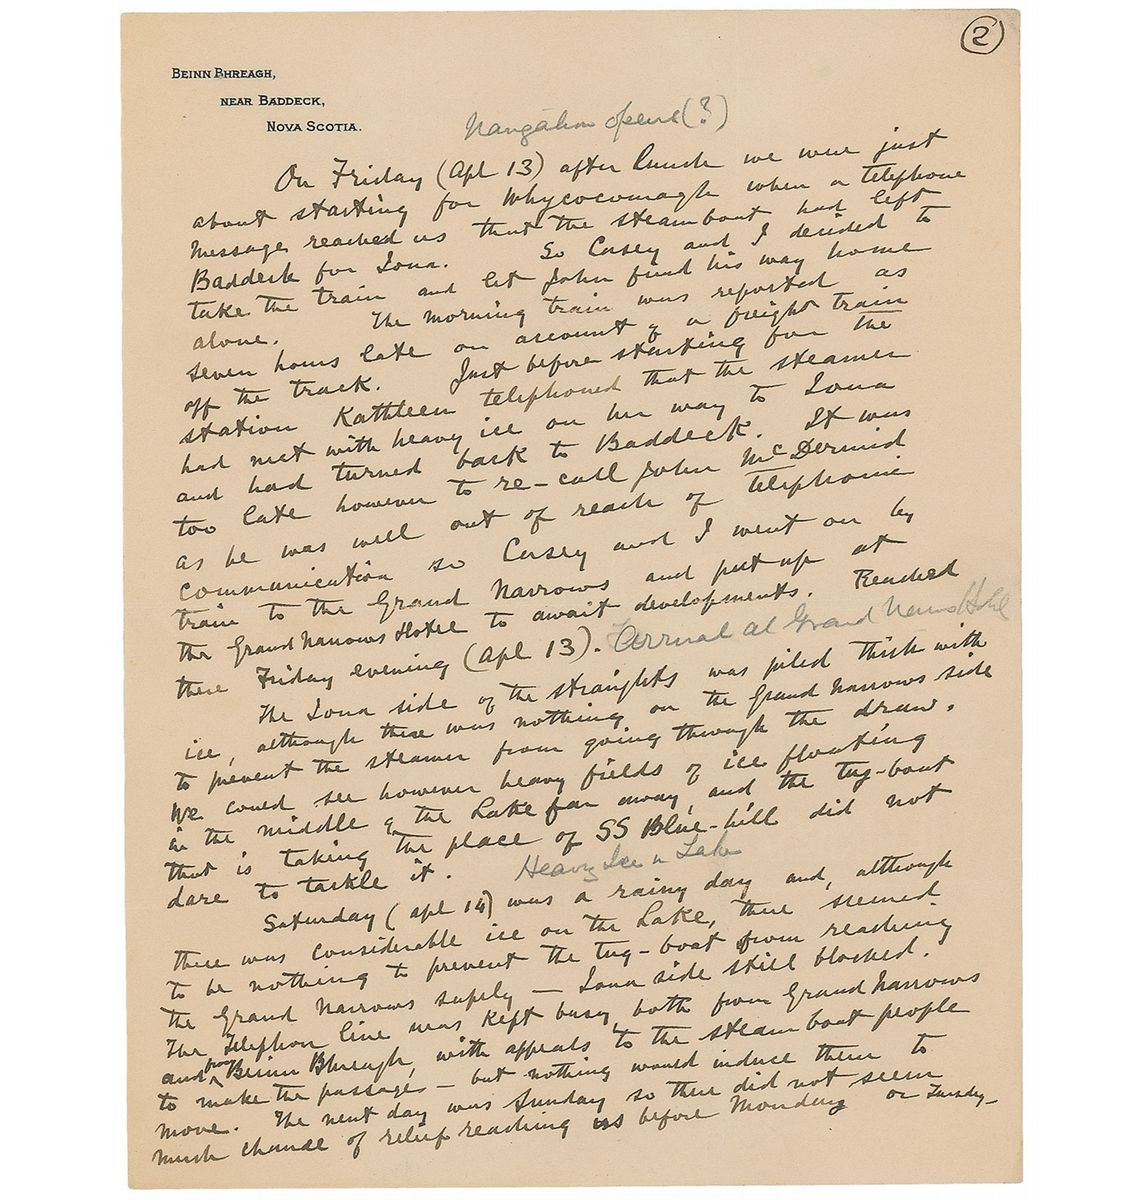 2
BEINN BHREAGH,
NEAR BADDECK,
NOVA SCOTIA.
Navigation opens (?)
On Friday (Apl 13) after lunch we were just
about starting for Whycocomagh when a telephone
message reached us that the steamboat had left
Baddeck for Iona. So Casey and I decided to
take the train and let John find his way home
alone. The morning train was reported as
seven hours late on account of a freight train
off the track. Just before starting for the
station Kathleen telephoned that the steamer
had met with heavy ice on her way to Iona
and had turned back to Baddeck. It was
too late however to re-call John McDermid
as he was well out of reach of telephonic
communication so Casey and I went on by
train to the Grand Narrows and put up at
the Grand Narrows Hotel to await developments. Reached
there Friday evening (Apl 13). Arrival at Grand Narrows Hotel
The Iona side of the straights was piled thick with
ice, although there was nothing on the Grand Narrows side
to prevent the steamer from going through the draw.
We could see however heavy fields of ice floating
in the middle of the Lake far away, and the tug-boat
that is taking the place of SS Blue-hill did not
dare to tackle it. Heavy Ice in Lake
Saturday (Apl 14) was a rainy day and, although
there was considerable ice on the Lake, there seemed
to be nothing to prevent the tug-boat from reaching
the Grand Narrows safely — Iona side still blocked.
The Telephon line was kept busy both from Grand Narrows
and from Beinn Bhreagh, with appeals to the steamboat people
to make the passage — but nothing would induce them to
move. The next day was Sunday so there did not seem
much chance of relief reaching us before Monday or Tuesday —